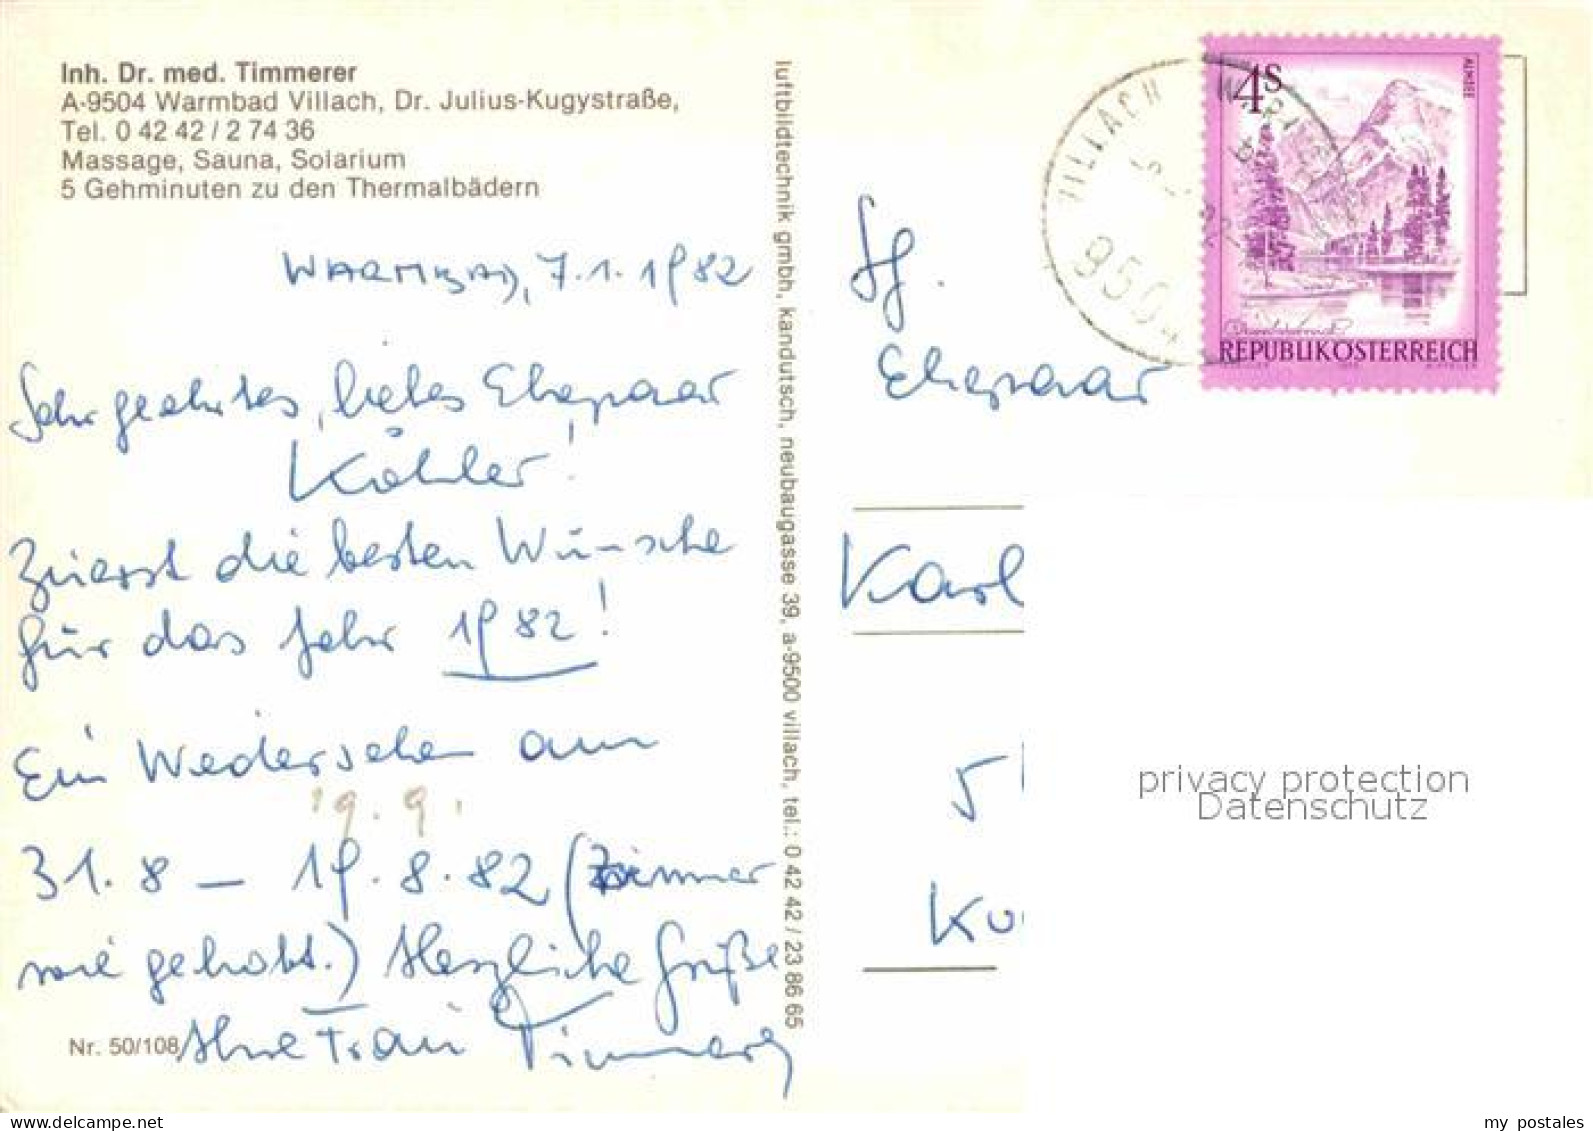 Inh. Dr. med. Timmerer
A-9504 Warmbad Villach, Dr. Julius-Kugystraße,
Tel. 0 42 42 / 2 74 36
Massage, Sauna, Solarium
5 Gehminuten zu den Thermalbädern
WARMBAD, 7.1.1982
Sehr geehrtes, liebes Ehepaar
Köhler!
Zuerst die besten Wünsche
für das Jahr 1982!
Ein Wiedersehen am
19.9.
31.8 – 19.8.82 (Zimmer
wie gehabt.) Herzliche Grüße
Ihre Frau Timmerer
Nr. 50/108
luftbildtechnik gmbh, kandutsch, neubaugasse 39, a-9500 villach, tel.: 0 42 42 / 23 86 65
VILLACH WARMBAD
9504
4S
ALMSEE
REPUBLIK ÖSTERREICH
Ehepaar
Karl
5
privacy protection
Datenschutz
my postales